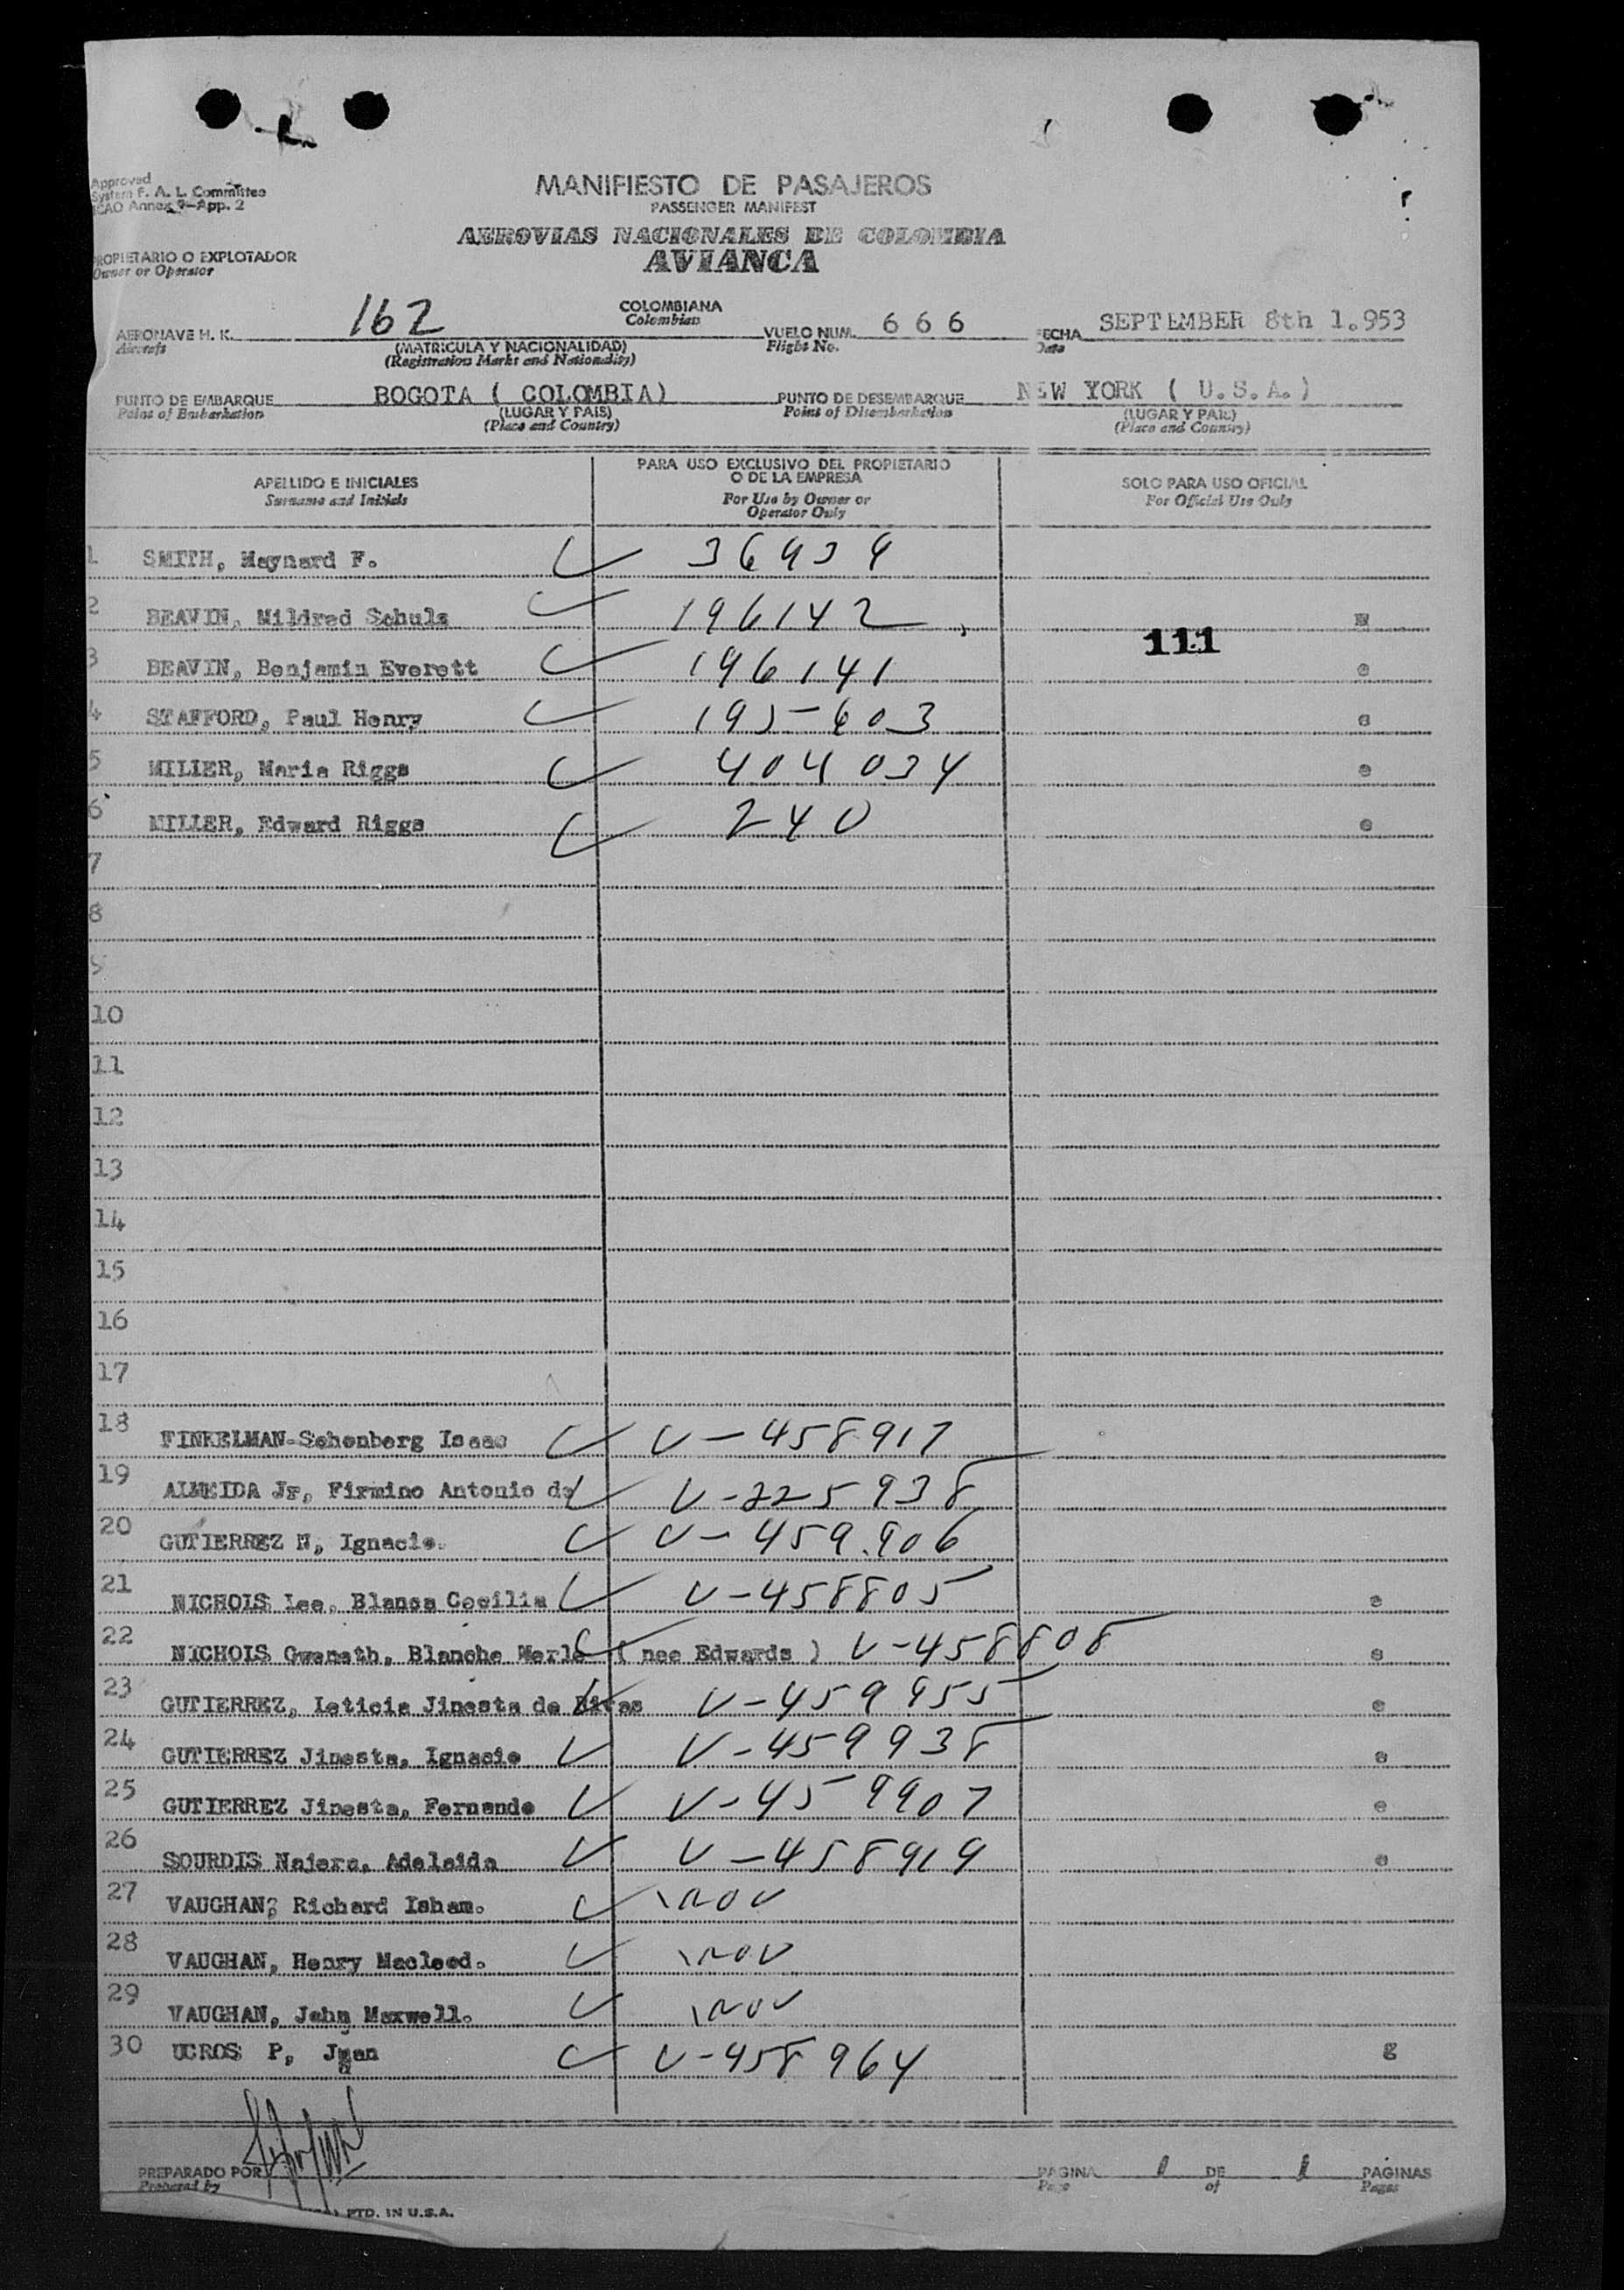 Approved
System F. A. L. Committee
ICAO Annex 9—App. 2
MANIFIESTO DE PASAJEROS
PASSENGER MANIFEST
AEROVIAS NACIONALES DE COLOMBIA
AVIANCA
PROPIETARIO O EXPLOTADOR
Owner or Operator
AERONAVE H. K. 162 COLOMBIANA VUELO NUM. 666 FECHA SEPTEMBER 8th 1.953
Aircraft Colombian Flight No. Date
(MATRICULA Y NACIONALIDAD)
(Registration Marks and Nationality)
PUNTO DE EMBARQUE BOGOTA ( COLOMBIA) PUNTO DE DESEMBARQUE NEW YORK ( U.S.A.)
Point of Embarkation (LUGAR Y PAIS) Point of Disembarkation (LUGAR Y PAIS)
(Place and Country) (Place and Country)
APELLIDO E INICIALES PARA USO EXCLUSIVO DEL PROPIETARIO O DE LA EMPRESA SOLO PARA USO OFICIAL
Surname and Initials For Use by Owner or Operator Only For Official Use Only
1 SMITH, Maynard F. 36939
2 BEAVIN, Mildred Schulz 196142
111
3 BEAVIN, Benjamin Everett 196141
4 STAFFORD, Paul Henry 195603
5 MILLER, Maria Riggs 404034
6 MILLER, Edward Riggs 240
7
8
9
10
11
12
13
14
15
16
17
18 FINKELMAN-Schonberg Isaac V-458917
19 ALMEIDA Jr, Firmino Antonio de V-225938
20 GUTIERREZ N, Ignacio. V-459.906
21 NICHOLS Lee, Blanca Cecilia V-458805
22 NICHOLS Gweneth, Blanche Merle ( nee Edwards ) V-458808
23 GUTIERREZ, Leticia Jinesta de Rivas V-459955
24 GUTIERREZ Jinesta, Ignacio V-459938
25 GUTIERREZ Jinesta, Fernando V-459907
26 SOURDIS Najera, Adelaida V-458919
27 VAUGHAN, Richard Isham.
28 VAUGHAN, Henry Macleod.
29 VAUGHAN, John Maxwell.
30 UCROS P, Juan V-458964
PREPARADO POR PAGINA 1 DE 1 PAGINAS
Prepared by Page of Pages
PTD. IN U.S.A.